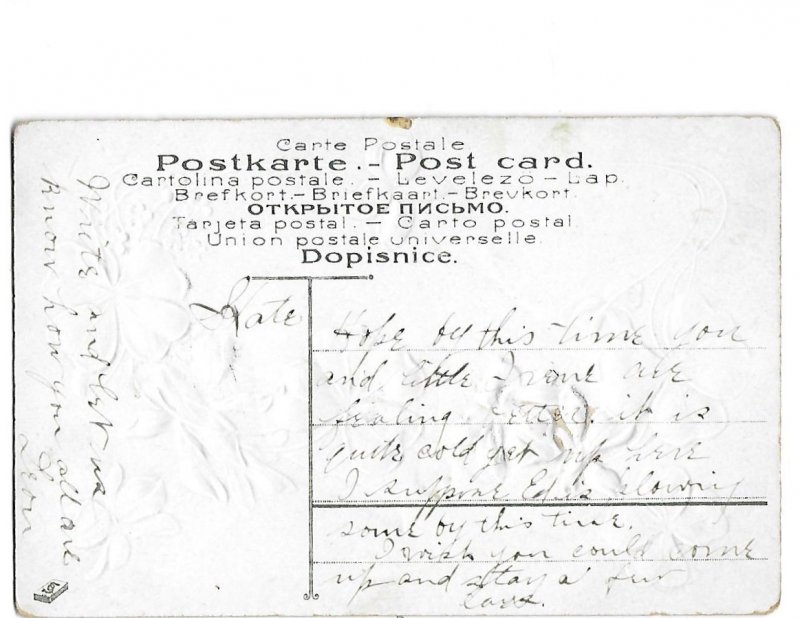 Carte Postale
Postkarte. - Post card.
Cartolina postale. - Levelezö - Lap.
Brefkort. - Briefkaart. - Brevkort.
ОТКРЫТОЕ ПИСЬМО.
Tarjeta postal. - Carto postal.
Union postale universelle.
Dopisnice.
Kate
Hope by this time you
and little Irene are
fealing better. it is
quite cold yet up here
I suppose Ed is plowing
some by this time.
I wish you could come
up and stay a few
days.
Write and let us
know how you all are